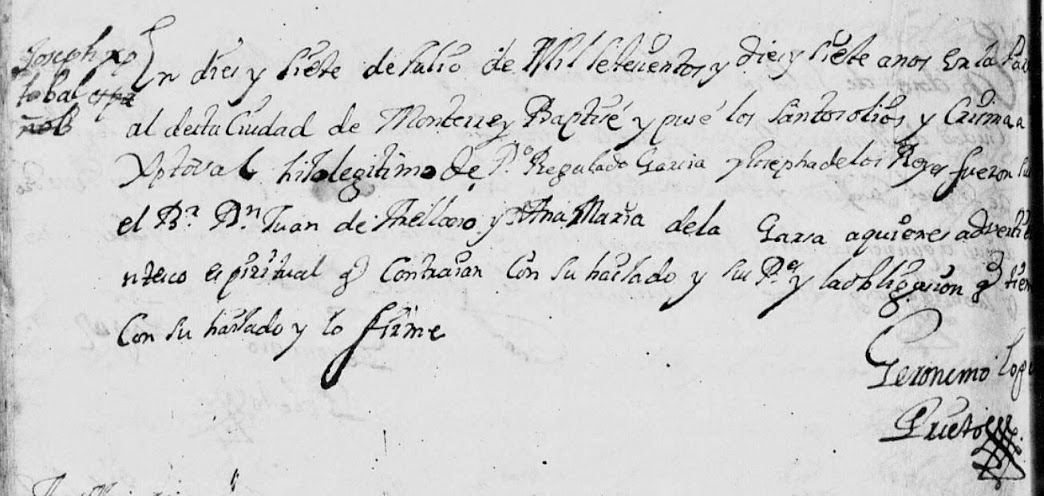 Joseph xp
tobal espa
ñol
En dies y siete de Julio de Mil setecientos y dies y siete anos En la Pa
al desta Ciudad de Monterrey Baptise y puse los Santos olios y Crisma a
Xptoval hijo legitimo de P.º Regulado Garcia y Josepha de los Reyes fueron su
el B.r D.n Juan de Arellano y Ana Maria de la Garsa a quienes adverti el
ntesco espiritual q Contraian Con su haijado y sus P.es y la obligasion q tien
Con su haijado y lo firme
Geronimo Lop
Prieto